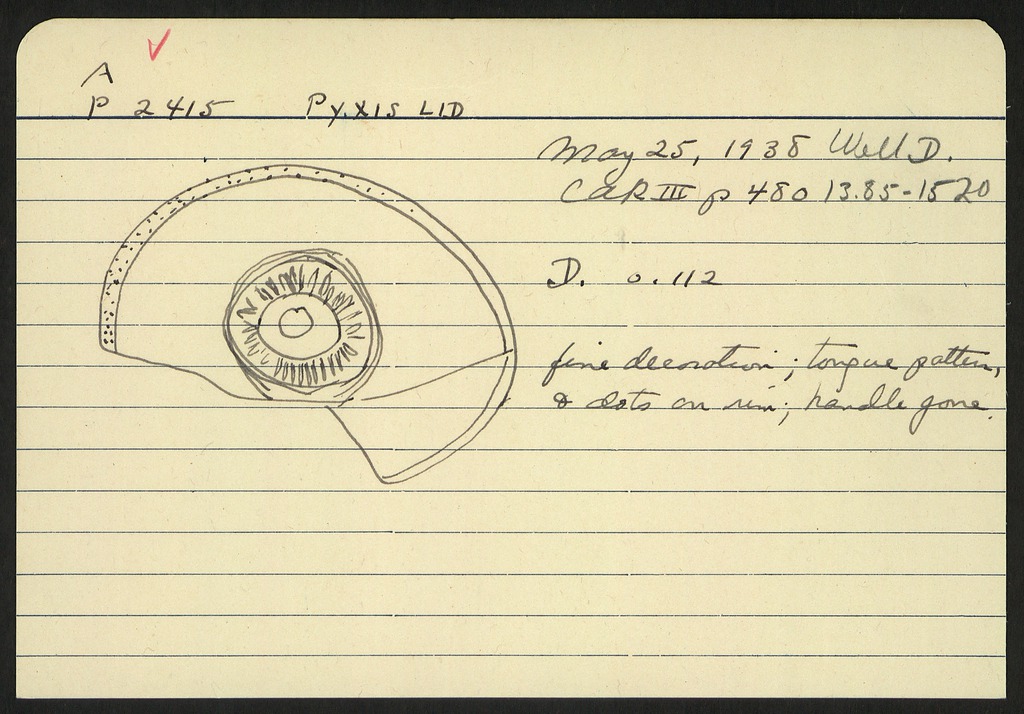 A
P 2415 Pyxis LID
May 25, 1938 Well D.
CAR III p 480 13.85-15.20
D. 0.112
fine decoration; tongue pattern,
& dots on rim; handle gone.